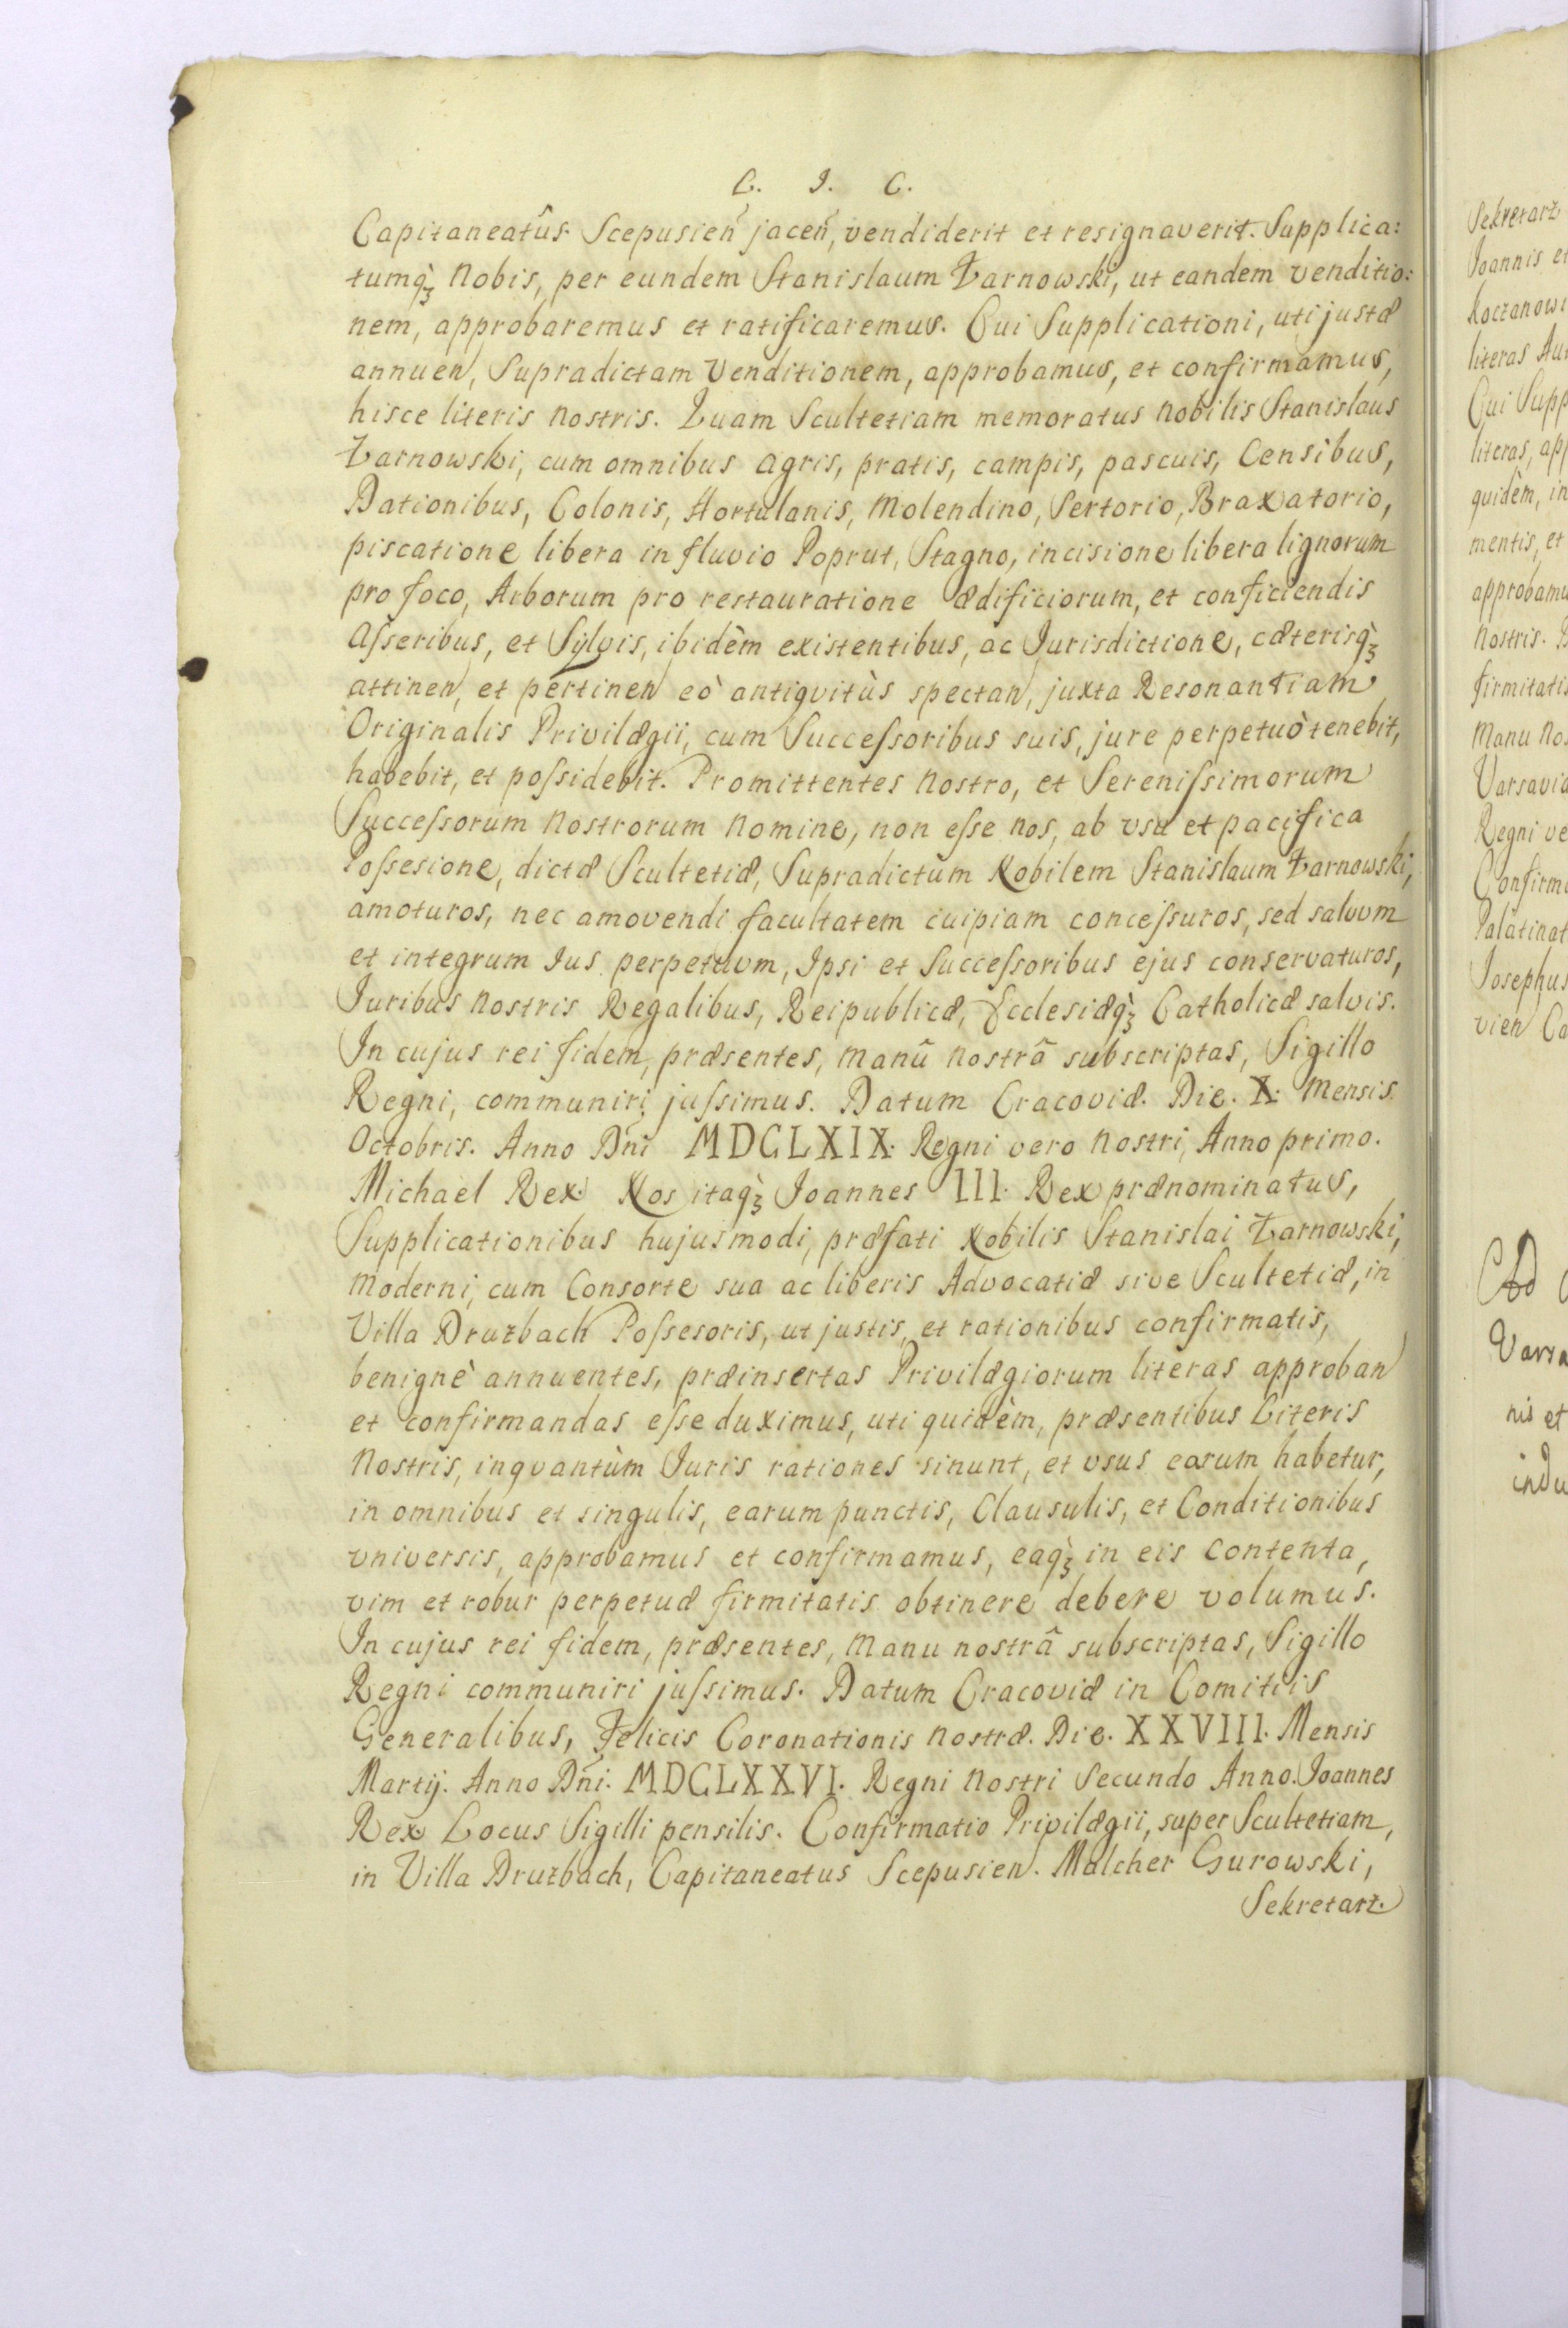 C. I. C.
Capitaneatûs Scepusień jaceń, vendiderit et resignaverit. Supplica:
tumq̀ꝫ Nobis, per eundem Stanislaum Żarnowski, ut eandem venditio:
nem, approbaremus et ratificaremus. Cui Supplicationi, uti justæ
annuen, Supradictam Venditionem, approbamus, et confirmamus,
hisce literis Nostris. Quam Scultetiam memoratus Nobilis Stanislaus
Żarnowski, cum omnibus agris, pratis, campis, pascuis, Censibus,
Dationibus, Colonis, Hortulanis, Molendino, Sertorio, Braxatorio,
piscatione libera in fluvio Poprut, Stagno, incisione libera lignorum
pro foco, Arborum pro restauratione ædificiorum, et conficiendis
Aſseribus, et Sylvis, ibidèm existentibus, ac Jurisdictione, cæterisq̀ꝫ
attinen, et pertinen eò antiqvitùs spectan, juxta Resonantiam
Originalis Privilægii, cum Succeſsoribus suis, jure perpetuò tenebit,
habebit, et poſsidebit. Promittentes Nostro, et Sereniſsimorum
Succeſsorum Nostrorum Nomine, non eſse nos, ab vsu et pacifica
Poſsesione, dictæ Scultetiæ, Supradictum Nobilem Stanislaum Żarnowski,
amoturos, nec amovendi facultatem cuipiam conceſsuros, sed salvum
et integrum Ius perpetuvm, Ipsi et Succeſsoribus ejus conservaturos,
Juribus Nostris Regalibus, Reipublicæ, Ecclesiæq̀ꝫ Catholicæ salvis.
In cujus rei fidem, præsentes, Manû Nostrâ subscriptas, Sigillo
Regni, communiri juſsimus. Datum Cracoviæ. Die. X. Mensis.
Octobris. Anno Dñi MDCLXIX. Regni vero Nostri, Anno primo.
Michael Rex. Nos itaq̀ꝫ Joannes III. Rex prænominatus,
Supplicationibus hujusmodi, præfati Nobilis Stanislai Żarnowski,
Moderni, cum Consorte sua ac liberis Advocatiæ sive Scultetiæ, in
Villa Druzbach Poſsesoris, ut justis, et rationibus confirmatis,
benignè annuentes, præinsertas Privilægiorum literas approban
et confirmandas eſse duximus, uti quidèm, præsentibus Literis
Nostris, inqvantùm Juris rationes sinunt, et vsus earum habetur,
in omnibus et singulis, earum punctis, Clausulis, et Conditionibus
vniversis, approbamus et confirmamus, eaq̀ꝫ in eis contenta,
vim et robur perpetuæ firmitatis obtinere debere volumus.
In cujus rei fidem, præsentes, Manu nostrâ subscriptas, Sigillo
Regni communiri juſsimus. Datum Cracoviæ in Comitiis
Generalibus, Felicis Coronationis Nostræ. Die. XXVIII. Mensis
Martij. Anno Dñi. MDCLXXVI. Regni Nostri Secundo Anno. Joannes
Rex Locus Sigilli pensilis. Confirmatio Privilægii, super Scultetiam,
in Villa Druzbach, Capitaneatus Scepusien. Malcher Gurowski,
Sekretarz.
Sekretarz
Joannis et
literas
Cui Supp
literas, app
quidèm, in
mentis, et
approbamu
Nostris.
firmitatis
Manu Nos
Varsavia
Regni ve
Confirma
Palatinat
Josephus
vien Ca
Ad
nis et
indu